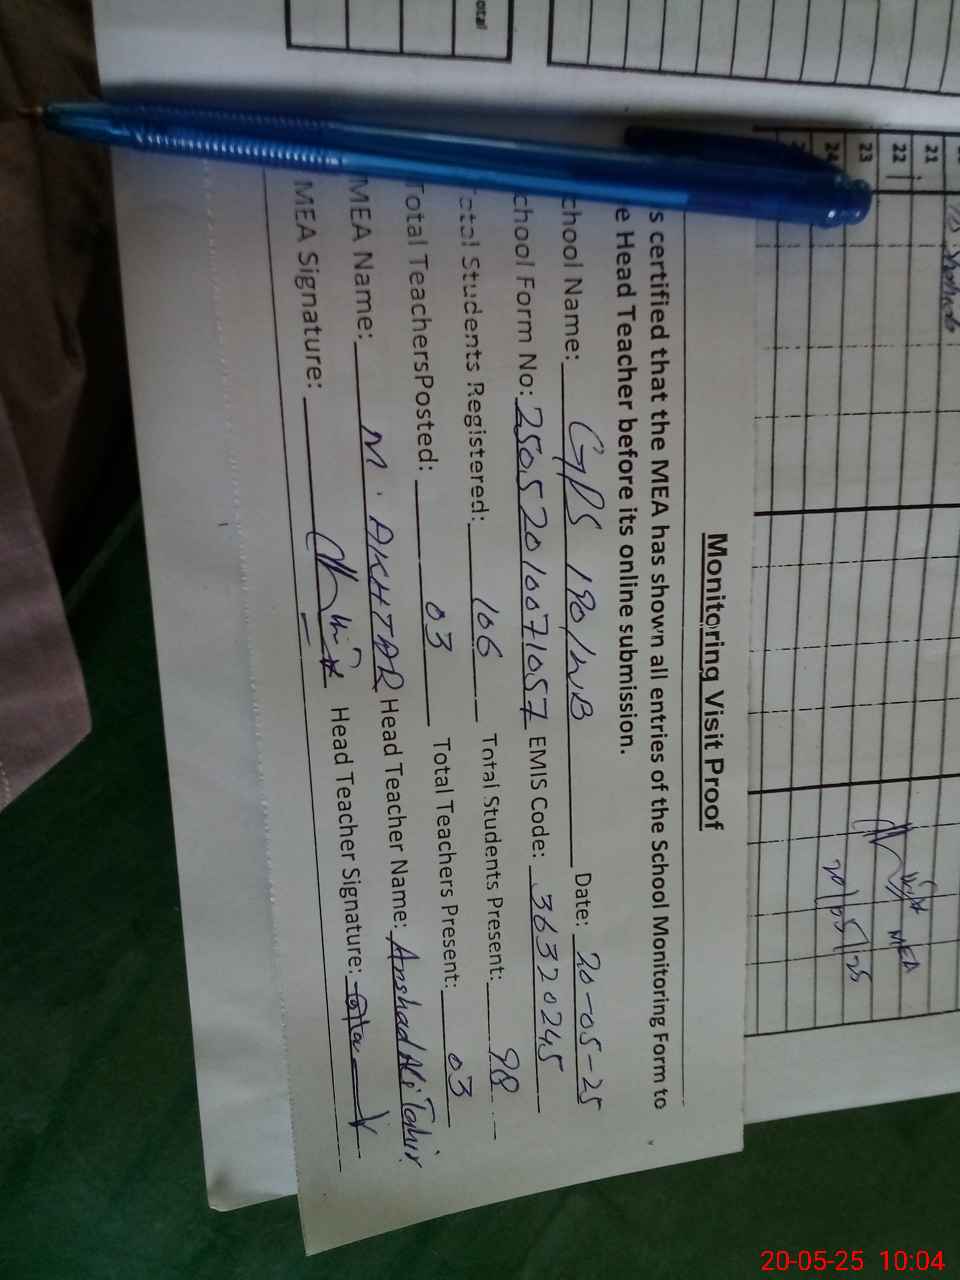 Monitoring Visit Proof
s certified that the MEA has shown all entries of the School Monitoring Form to
e Head Teacher before its online submission.
chool Name: GPS 190/WB Date: 20-05-25
chool Form No: 25052010071057 EMIS Code: 36320245
otal Students Registered: 106 Total Students Present: 98
Total TeachersPosted: 03 Total Teachers Present: 03
MEA Name: M. AKHTAR Head Teacher Name: Arshad Ali Tahir
MEA Signature: Head Teacher Signature:
otal
21
22
23
24
Visit MEA
20/05/25
20-05-25 10:04